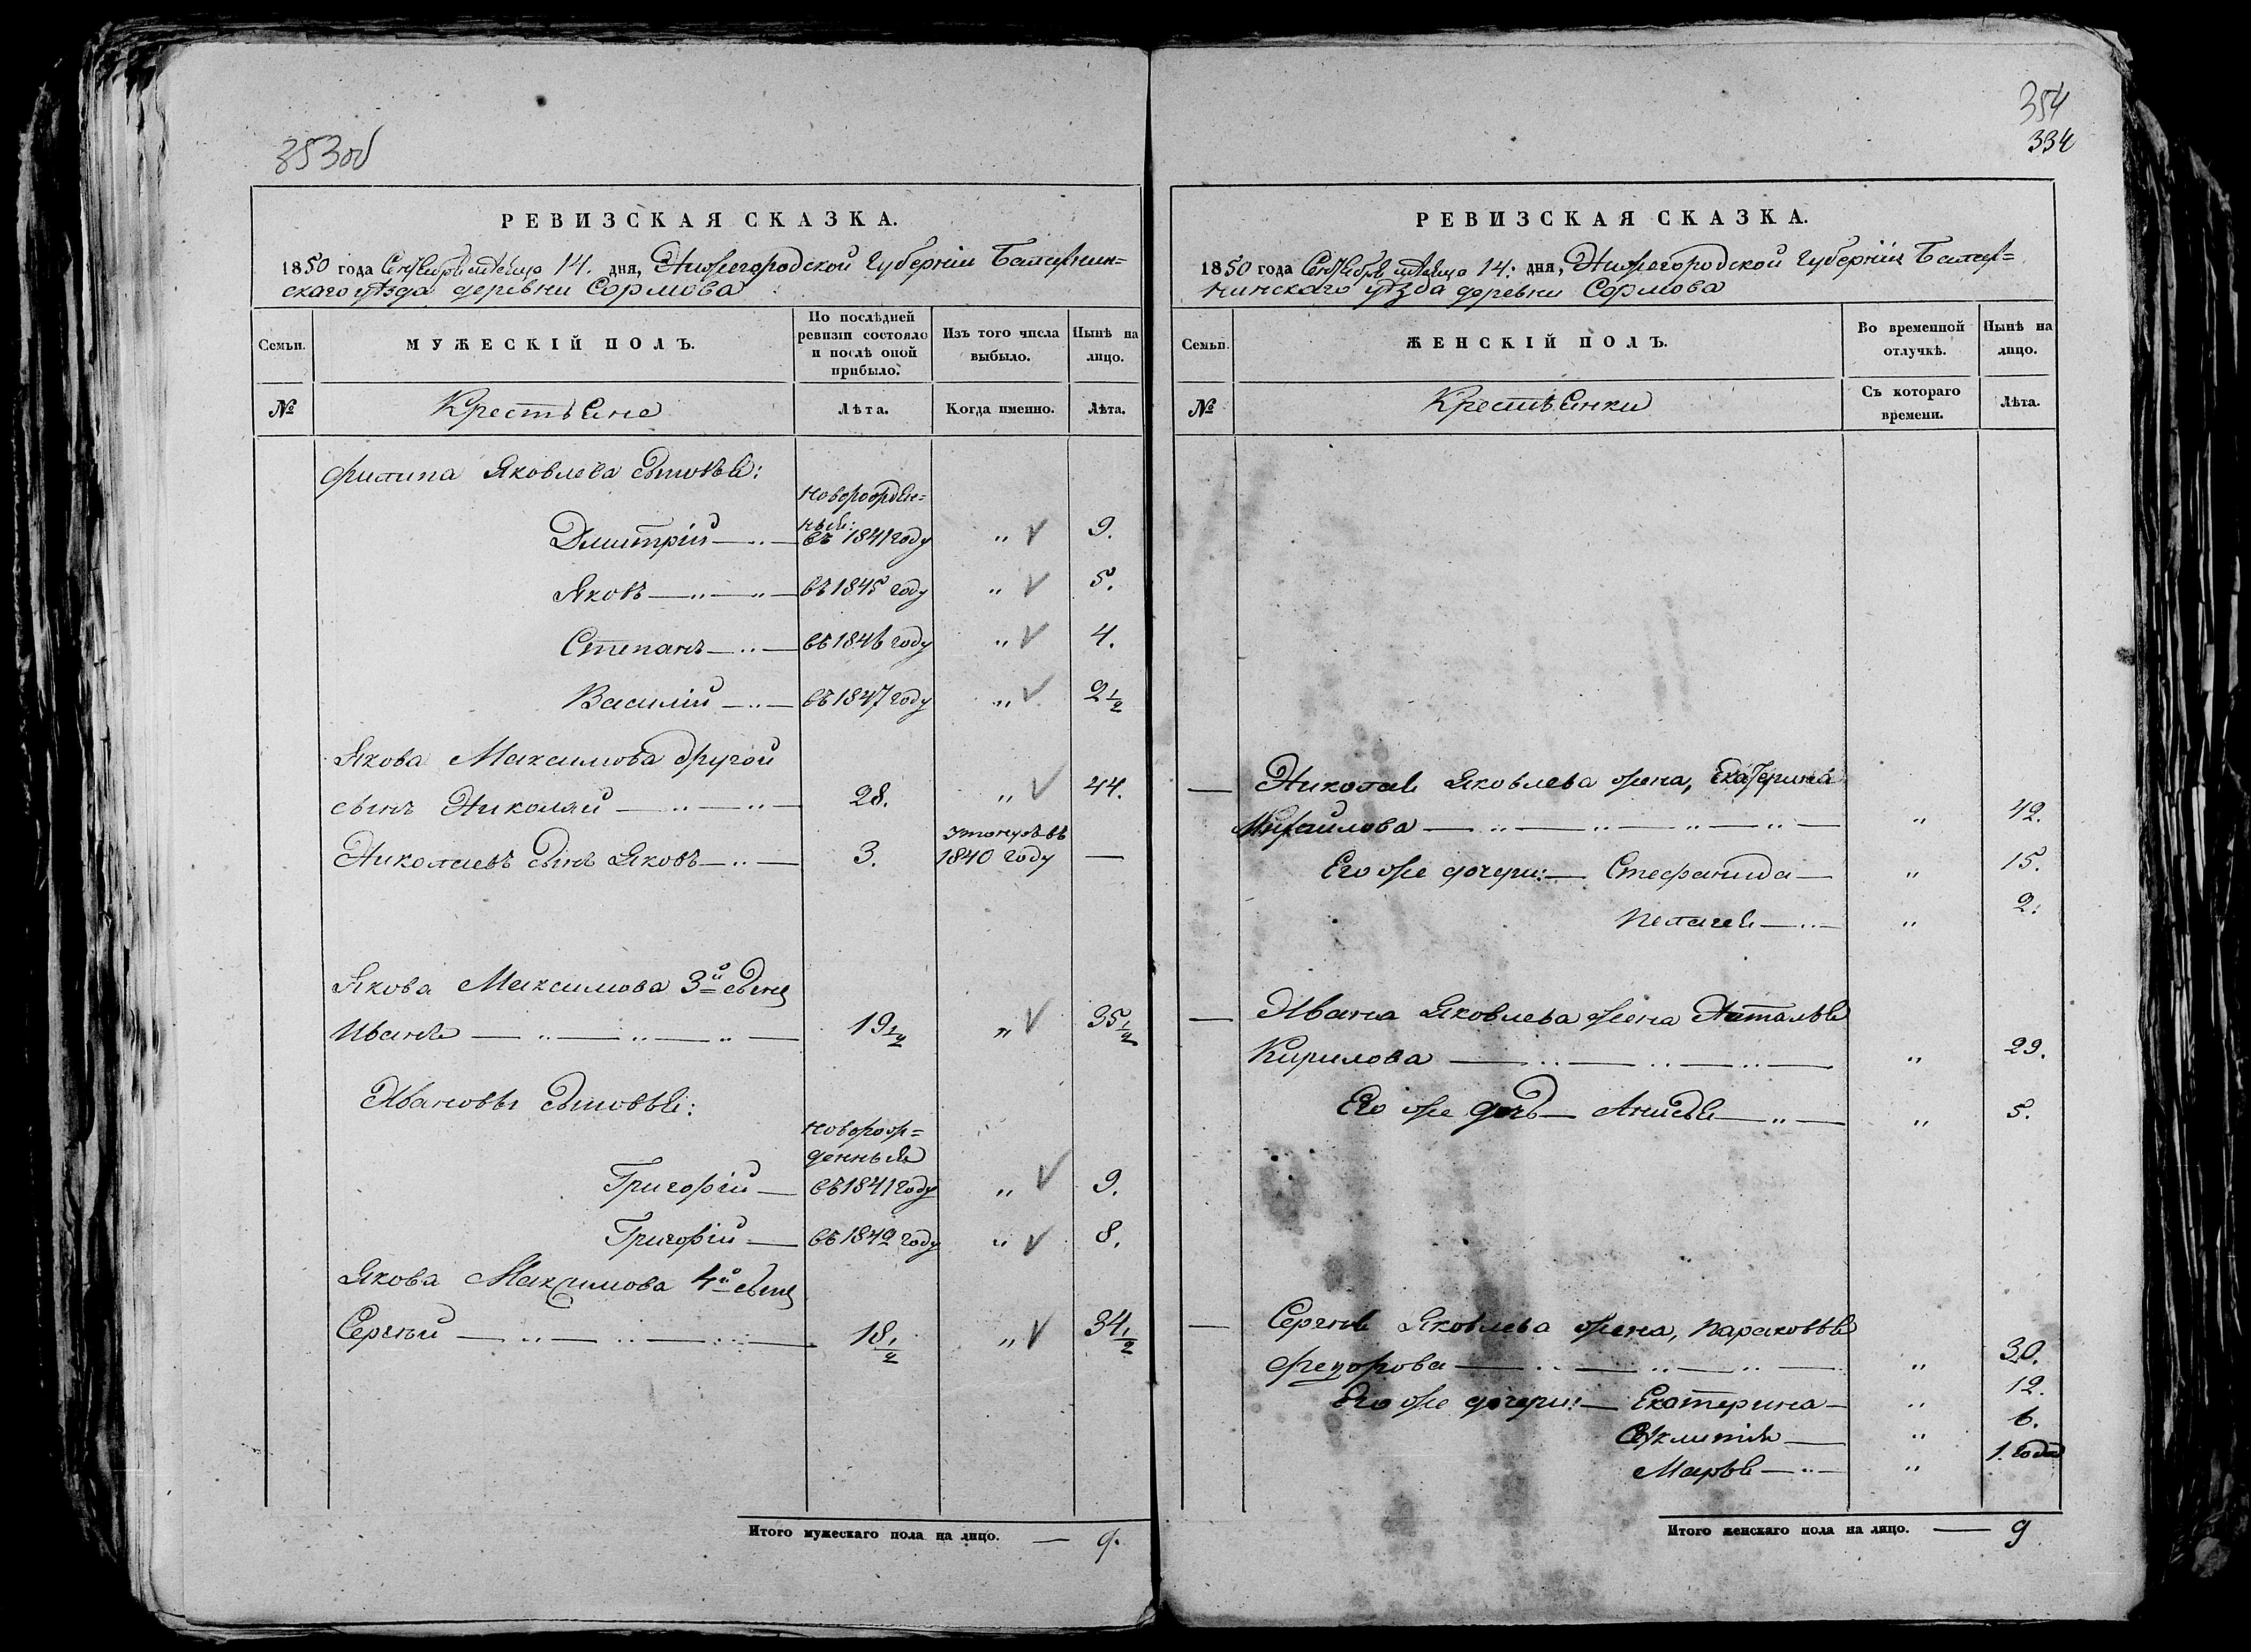 353об
РЕВИЗСКАЯ СКАЗКА.
1850 года Сентября месяца 14. дня, Нижегородской Губерніи Балахнин=
скаго уѣзда деревни Сормова
Семьи.
МУЖЕСКІЙ ПОЛЪ.
По послѣдней ревизіи состояло и послѣ оной прибыло.
Изъ того числа выбыло.
Нынѣ на лицо.
№
Крестьяне
Лѣта.
Когда именно.
Лѣта.
Филипа Яковлева сыновья:
новорожден=
ные:
Дмитрій — въ 1841 году „ 9.
Яковъ — въ 1845 году „ 5.
Степанъ — въ 1846 году „ 4.
Василій — въ 1847 году „ 2 1/2
Якова Максимова другой
сынъ Николай — 28. „ 44.
утонулъ въ
Николаевъ сынъ Яковъ — 3. 1840 году —
Якова Максимова 3й сынъ
Иванъ — 19 1/2 „ 35 1/2
Ивановы сыновья:
новорож=
денные
Григорій — въ 1841 году „ 9.
Григорій — въ 1842 году „ 8.
Якова Максимова 4й сынъ
Сергѣй — 18 1/2 „ 34 1/2
Итого мужескаго пола на лицо. — 9.
354
334
РЕВИЗСКАЯ СКАЗКА.
1850 года Сентября месяца 14. дня, Нижегородской Губерніи Балах=
нинскаго уѣзда деревни Сормова
Семьи.
ЖЕНСКІЙ ПОЛЪ.
Во временной отлучкѣ.
Нынѣ на лицо.
№
Крестьянки
Съ котораго времени.
Лѣта.
— Николая Яковлева жена, Екатерина
Михайлова — „ 42.
Его же дочери: — Стефанида — „ 15.
Пелагея — „ 2.
— Ивана Яковлева жена Наталья
Кирилова — „ 29.
Его же дочь — Анисья — „ 5.
— Сергѣя Яковлева жена, Парасковья
Федорова — „ 30.
Его же дочери: — Екатерина — „ 12.
„ 6.
Марья — „ 1. года
Итого женскаго пола на лицо. — 9